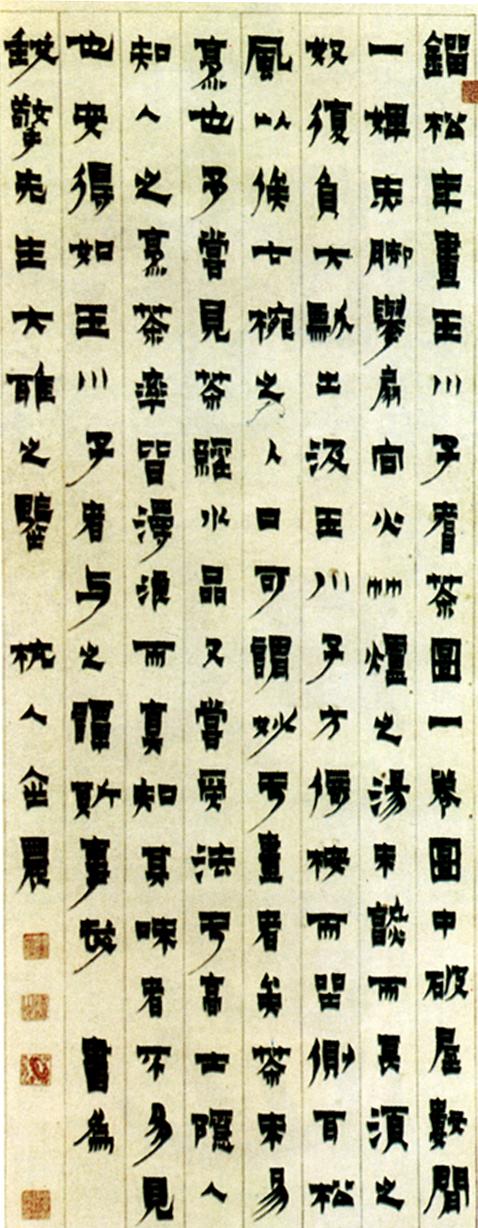 鎦松年畫玉川子耆茶圖一卷圖中破屋數間
一婢赤脚舉扇向火竹爐之湯未熟而長須之
奴復負大瓢出汲玉川子方倚桉而坐側耳松
風以俟七椀之入口可謂妙于畫者矣茶未易
烹也予嘗見茶經水品又嘗受法于高士隱人
知人之烹茶率皆漫浪而真知其味者不多見
也安得如玉川子者与之譚斯事哉 書為
先生大雅之鑒 杭人金農